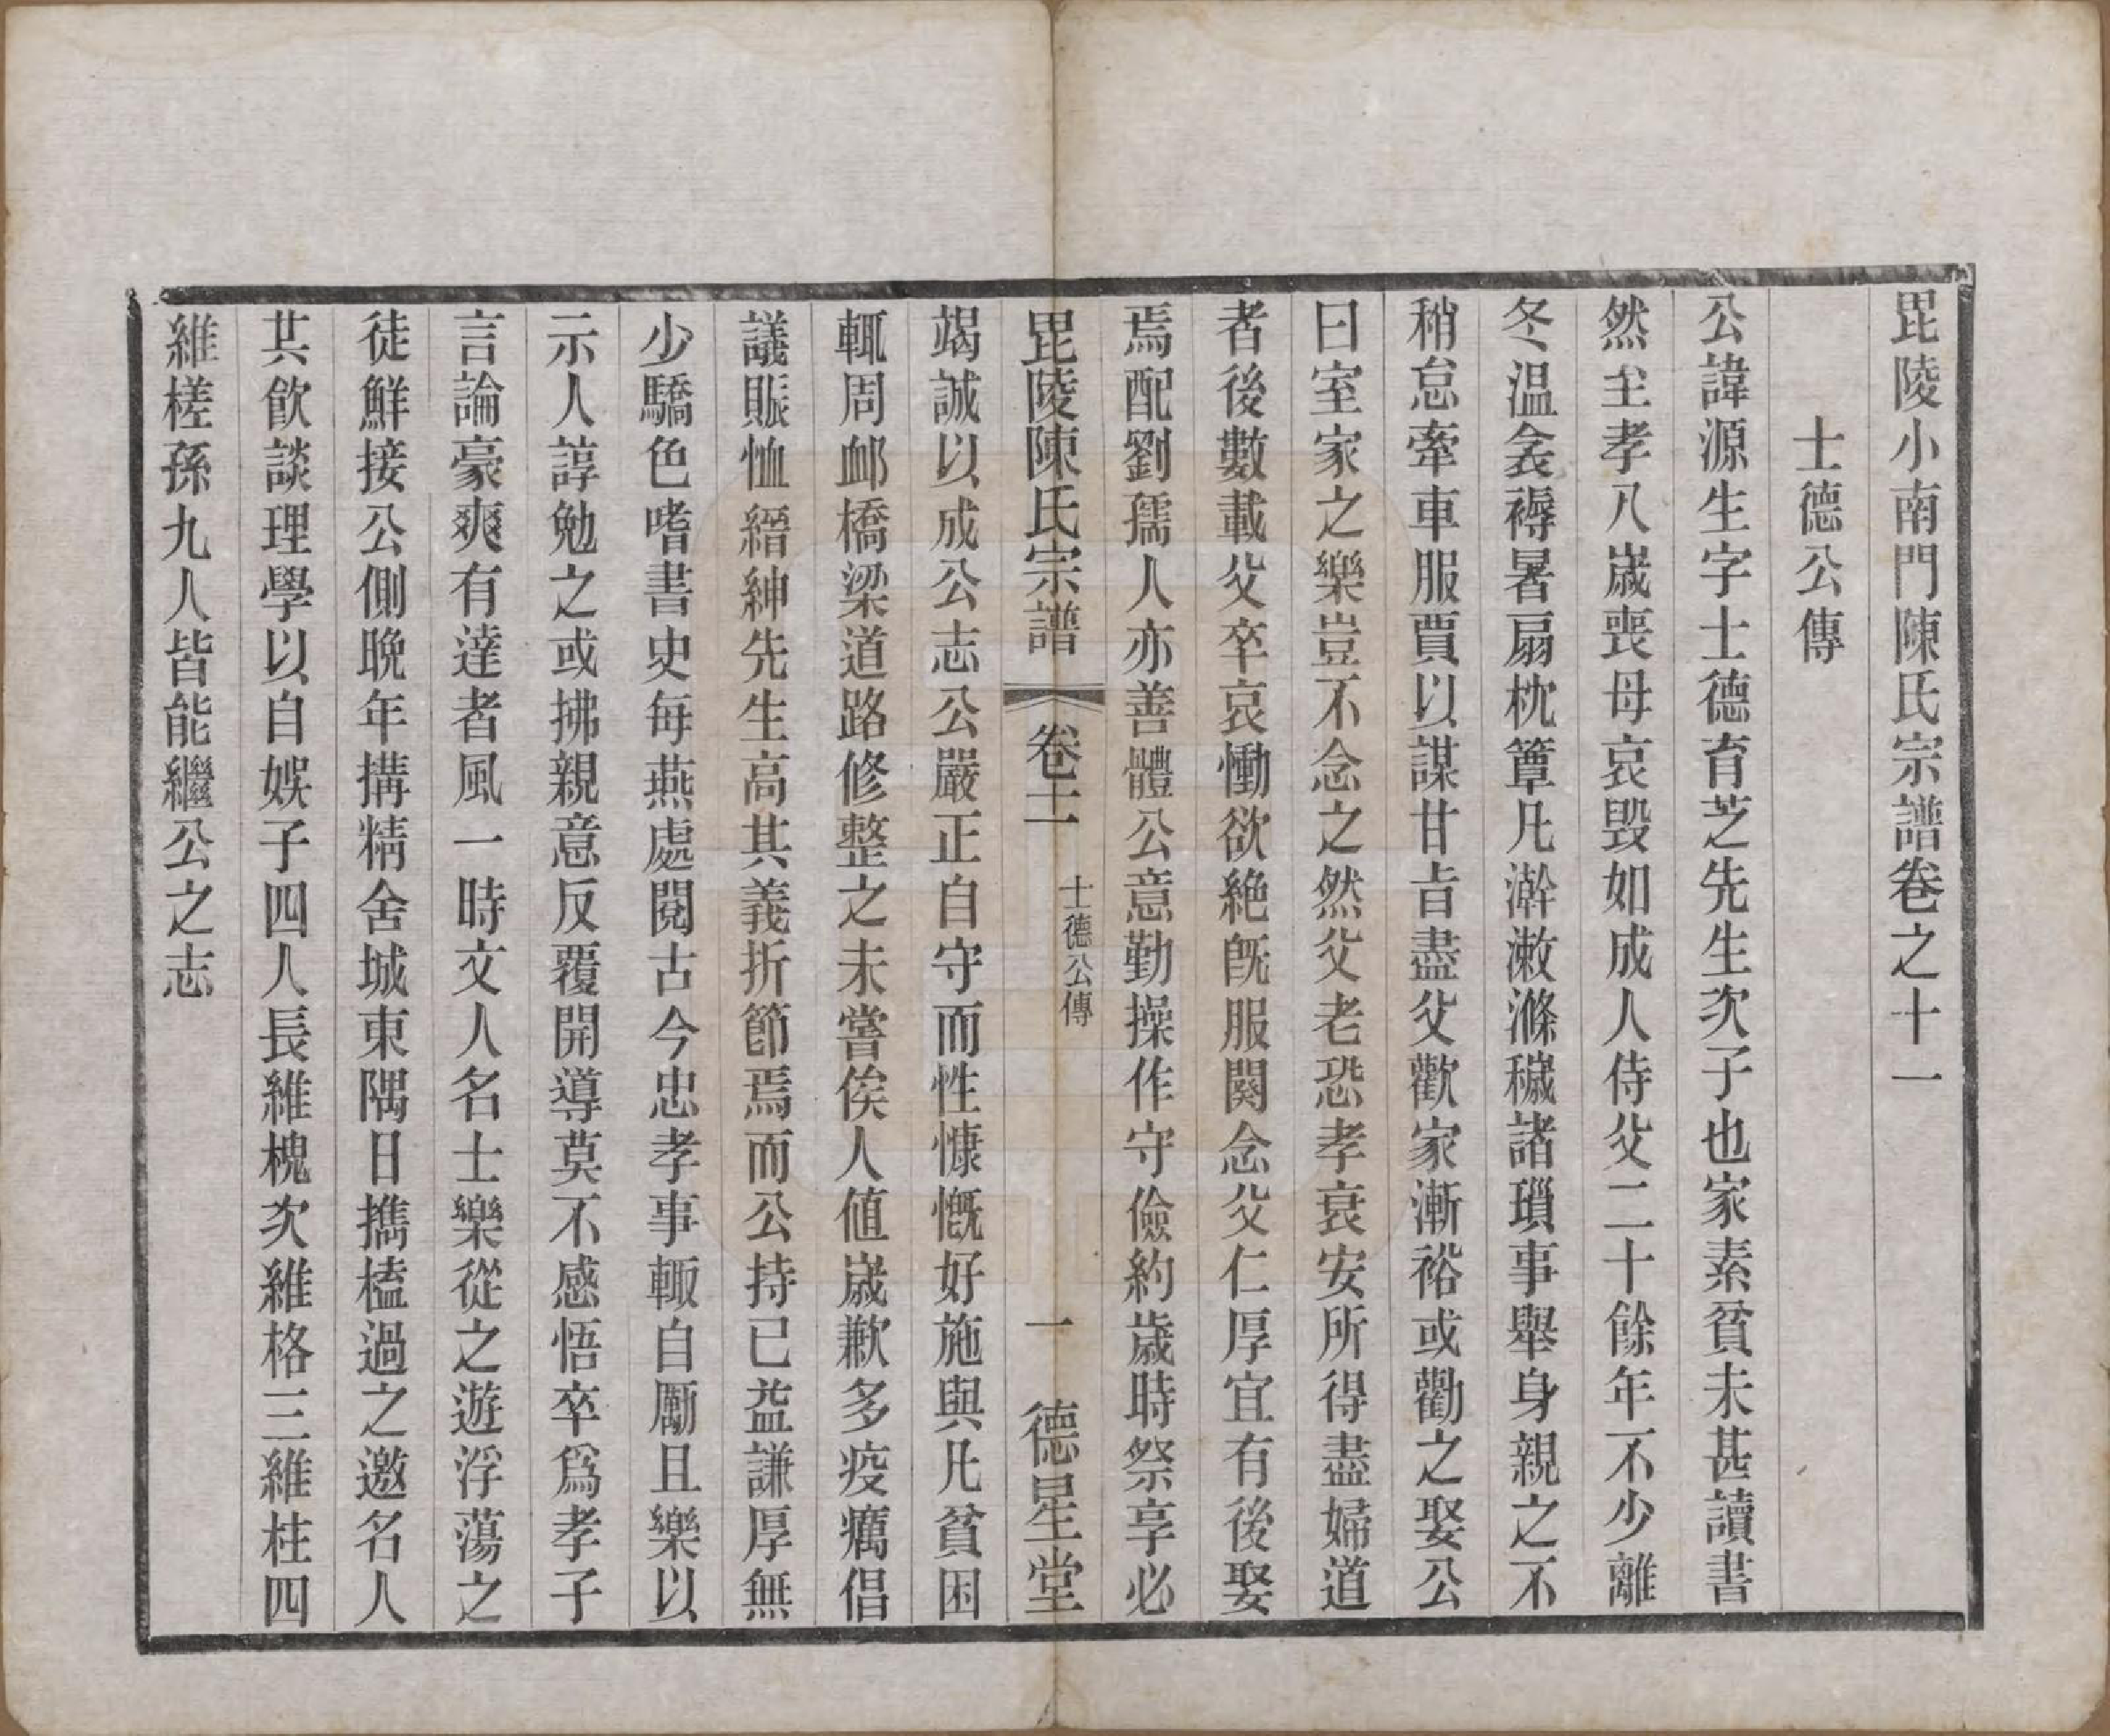 毘陵小南門陳氏宗譜卷之十一
士德公傳
公諱源生字士德育芝先生次子也家素貧未甚讀書
然至孝八歲喪母哀毀如成人侍父二十餘年不少離
冬温衾褥暑扇枕簟凡澣漱滌穢諸瑣事舉身親之不
稍怠牽車服賈以謀甘旨盡父歡家漸裕或勸之娶公
曰室家之樂豈不念之然父老恐孝衰安所得盡婦道
者後數載父卒哀慟欲絶旣服闋念父仁厚宜有後娶
焉配劉孺人亦善體公意勤操作守儉約歲時祭享必
毘陵陳氏宗譜 卷十一 士德公傳 一 德星堂
竭誠以成公志公嚴正自守而性慷慨好施與凡貧困
輒周卹橋梁道路修整之未嘗俟人値歲歉多疫癘倡
議賑恤縉紳先生高其義折節焉而公持己益謙厚無
少驕色嗜書史每燕處閱古今忠孝事輙自勵且樂以
示人諄勉之或拂親意反覆開導莫不感悟卒爲孝子
言論豪爽有達者風一時文人名士樂從之遊浮蕩之
徒鮮接公側晩年搆精舍城東隅日擕榼過之邀名人
共飮談理學以自娛子四人長維槐次維格三維柱四
維槎孫九人皆能繼公之志